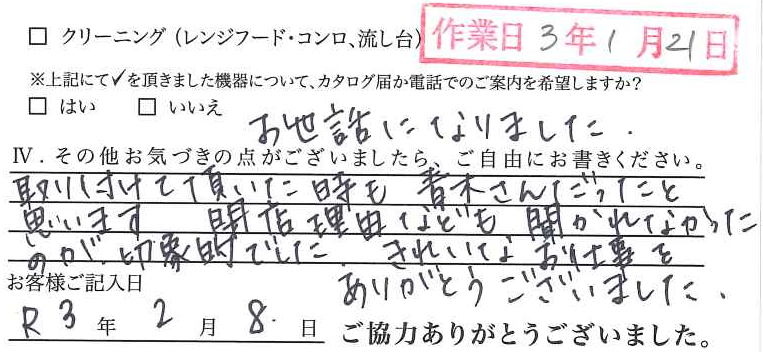 □ クリーニング（レンジフード・コンロ、流し台）
作業日 3年1月21日
※上記にて✓を頂きました機器について、カタログ届か電話でのご案内を希望しますか？
□ はい □ いいえ
お世話になりました.
Ⅳ．その他お気づきの点がございましたら、ご自由にお書きください。
取り付けて頂いた時も 青木さんだったと
思います 閉店理由なども 聞かれなかった
のが、印象的でした. きれいなお仕事を
ありがとうございました.
お客様ご記入日
R3年2月8日 ご協力ありがとうございました。